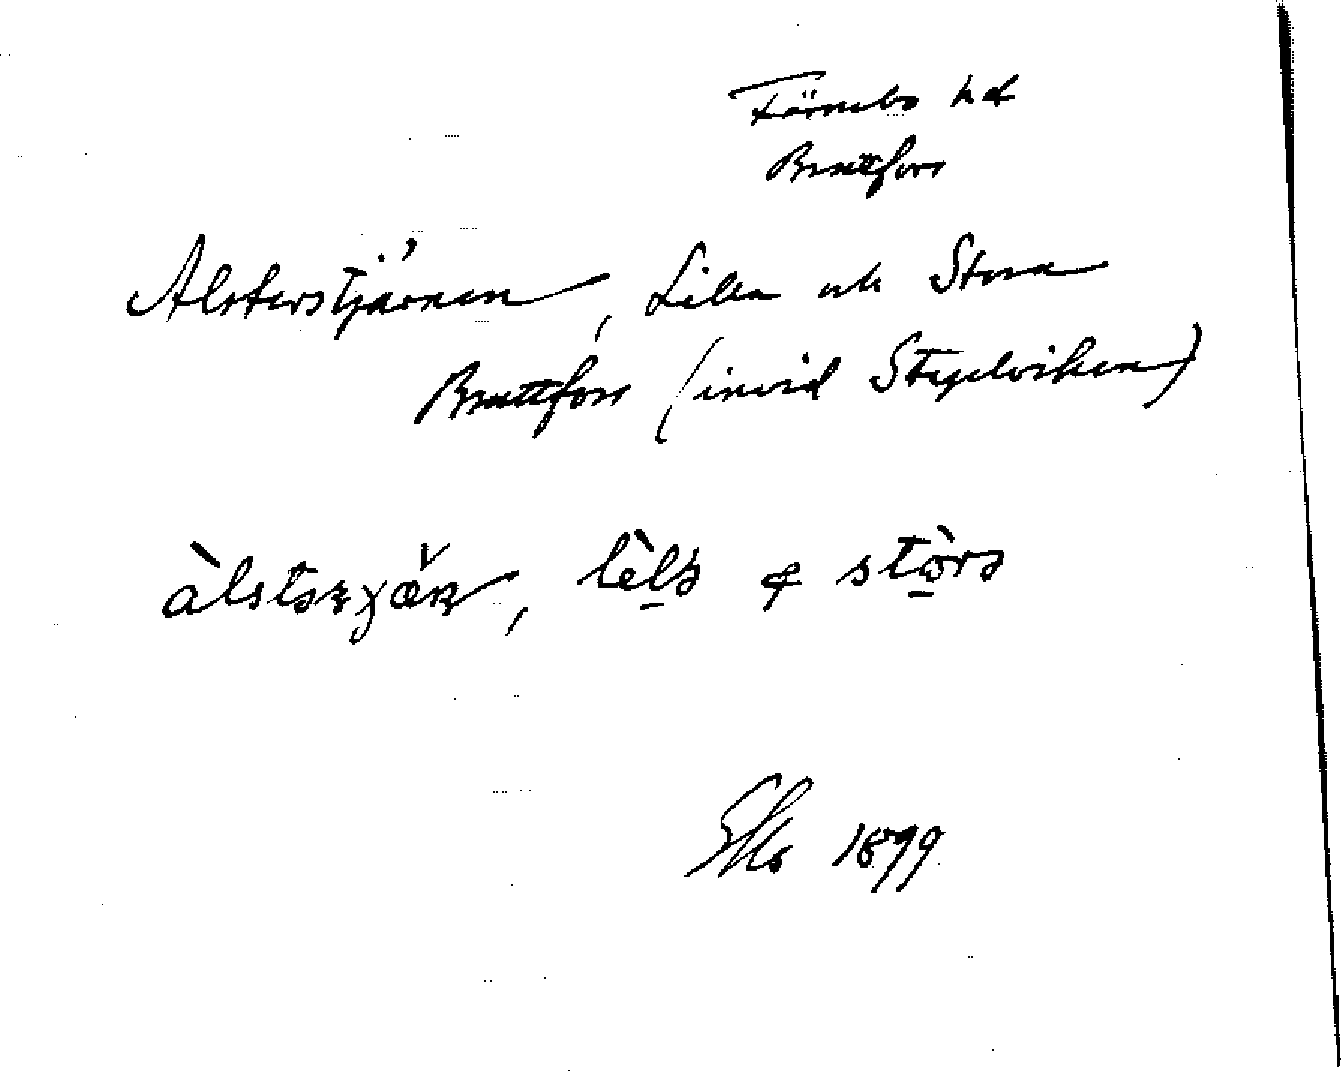 Färnebo hd
Brattfors
Alsterstjärnen, Lilla och Stora
Brattfors (invid Stypelviken)
àlstəɽɣǽɳ, lèlə & stòrə
1899